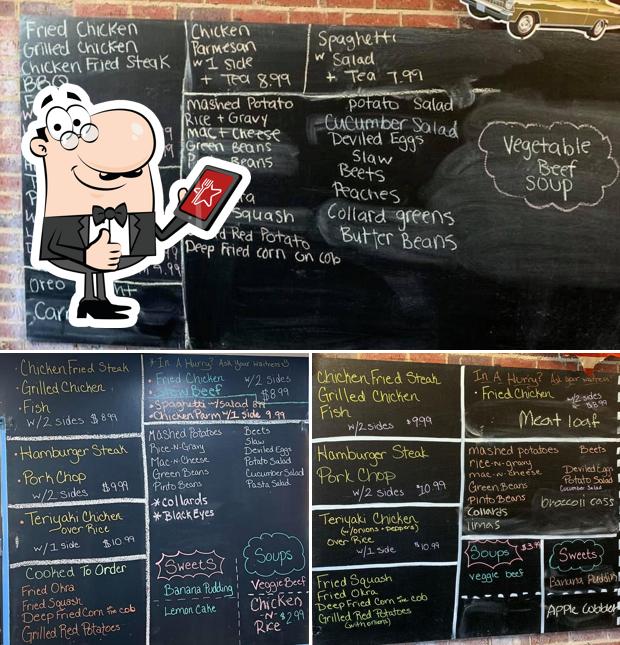 Fried Chicken
Grilled Chicken
Chicken Fried Steak
BBQ
Oreo
Car
Chicken
Parmesan
w 1 side
+ Tea 8.99
Spaghetti
w Salad
+ Tea 7.99
mashed Potato
Rice + Gravy
mac + cheese
Green Beans
Beans
Squash
Red Potato
Deep Fried corn on cob
potato Salad
Cucumber Salad
Deviled Eggs
Slaw
Beets
Peaches
Collard greens
Butter Beans
Vegetable
Beef
Soup
• Chicken Fried Steak
• Grilled Chicken
• Fish
w/2 sides $8.99
• Hamburger Steak
• Pork Chop
w/2 sides $9.99
• Teriyaki Chicken
over Rice
w/1 side $10.99
Cooked To Order
Fried Okra
Fried Squash
Deep Fried Corn on the cob
Grilled Red Potatoes
In A Hurry? Ask Your Waitress
• Fried Chicken w/2 sides
Beef $8.99
• Spaghetti w/salad
• Chicken Parm w/1 side 9.99
Mashed Potatoes
Rice-N-Gravy
Mac-N-Cheese
Green Beans
Pinto Beans
*Collards
*BlackEyes
Beets
Slaw
Deviled Eggs
Potato Salad
Cucumber Salad
Pasta Salad
Sweets
Banana Pudding
Lemon Cake
Soups
Veggie Beef
Chicken
N
Rice $2.99
Chicken Fried Steak
Grilled Chicken
Fish
w/2 sides $9.99
Hamburger Steak
Pork Chop
w/2 sides $10.99
Teriyaki Chicken
(w/onions + peppers)
over Rice
w/1 side $10.99
Fried Squash
Fried Okra
Deep Fried Corn on the cob
Grilled Red Potatoes
(with onions)
In A Hurry? Ask your waitress
• Fried Chicken w/2 sides
$8.99
Meat loaf
mashed potatoes
rice-n-gravy
mac-n-cheese
Green Beans
Pinto Beans
Collards
limas
Beets
Deviled Eggs
Potato Salad
Cucumber Salad
broccoli cass
Soups $3.99
veggie beef
Sweets
Banana Puddin
Apple Cobbler